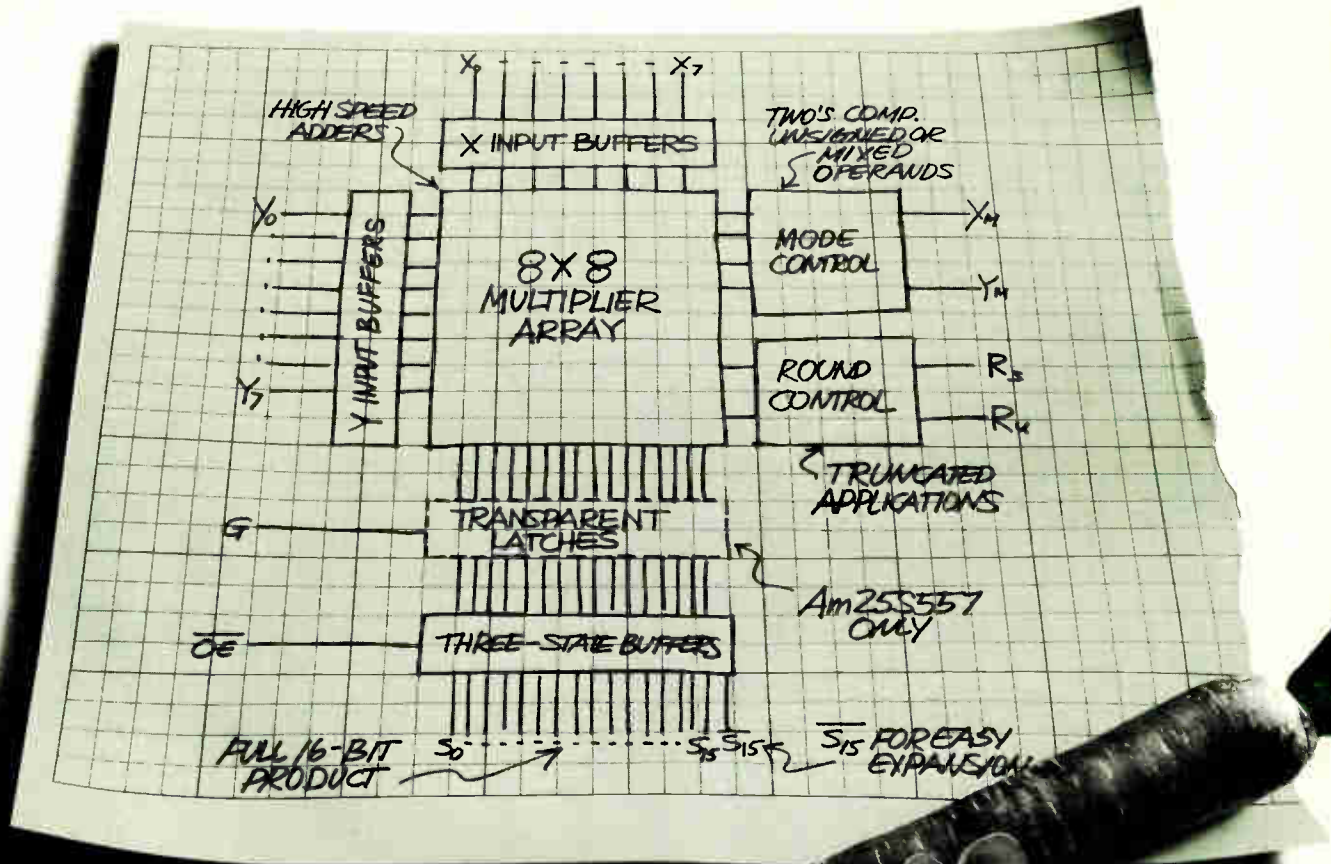 X₀ X₇
HIGH SPEED
ADDERS
X INPUT BUFFERS
TWO'S COMP.
UNSIGNED OR
MIXED
OPERANDS
Y₀
Y₇
Y INPUT BUFFERS
8X8
MULTIPLIER
ARRAY
MODE
CONTROL
X_M
Y_M
ROUND
CONTROL
R_S
R_U
TRUNCATED
APPLICATIONS
G
TRANSPARENT
LATCHES
Am25S557
ONLY
O̅E̅
THREE-STATE BUFFERS
FULL 16-BIT
PRODUCT
S₀ S₁₅ S̅₁₅
S̅₁₅ FOR EASY
EXPANSION